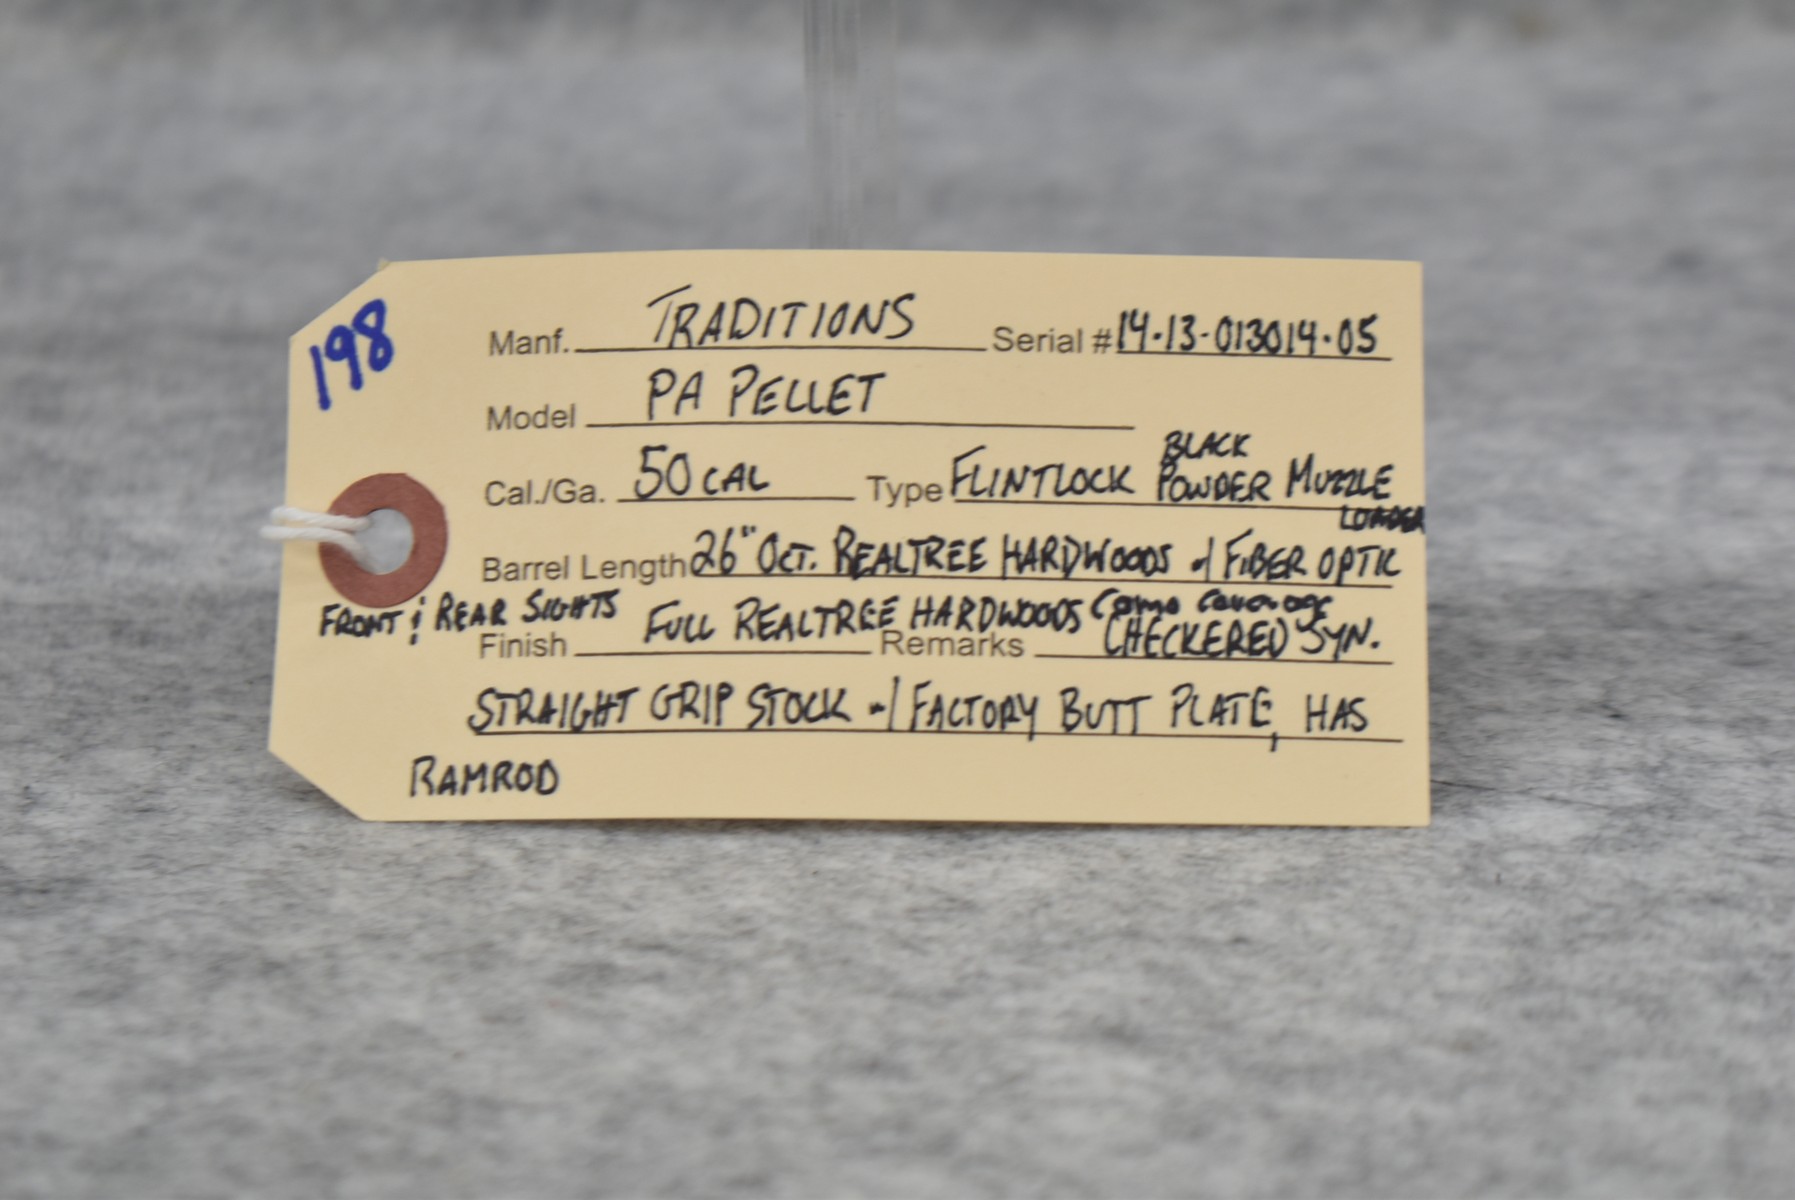 198
Manf. TRADITIONS Serial # 14-13-013014-05
Model PA PELLET
Cal./Ga. 50 CAL Type FLINTLOCK BLACK POWDER MUZZLE
LOADER
Barrel Length 26" OCT. REALTREE HARDWOODS w/ FIBER OPTIC
FRONT & REAR SIGHTS
Finish FULL REALTREE HARDWOODS Camo coverage
Remarks CHECKERED SYN.
STRAIGHT GRIP STOCK w/ FACTORY BUTT PLATE, HAS
RAMROD